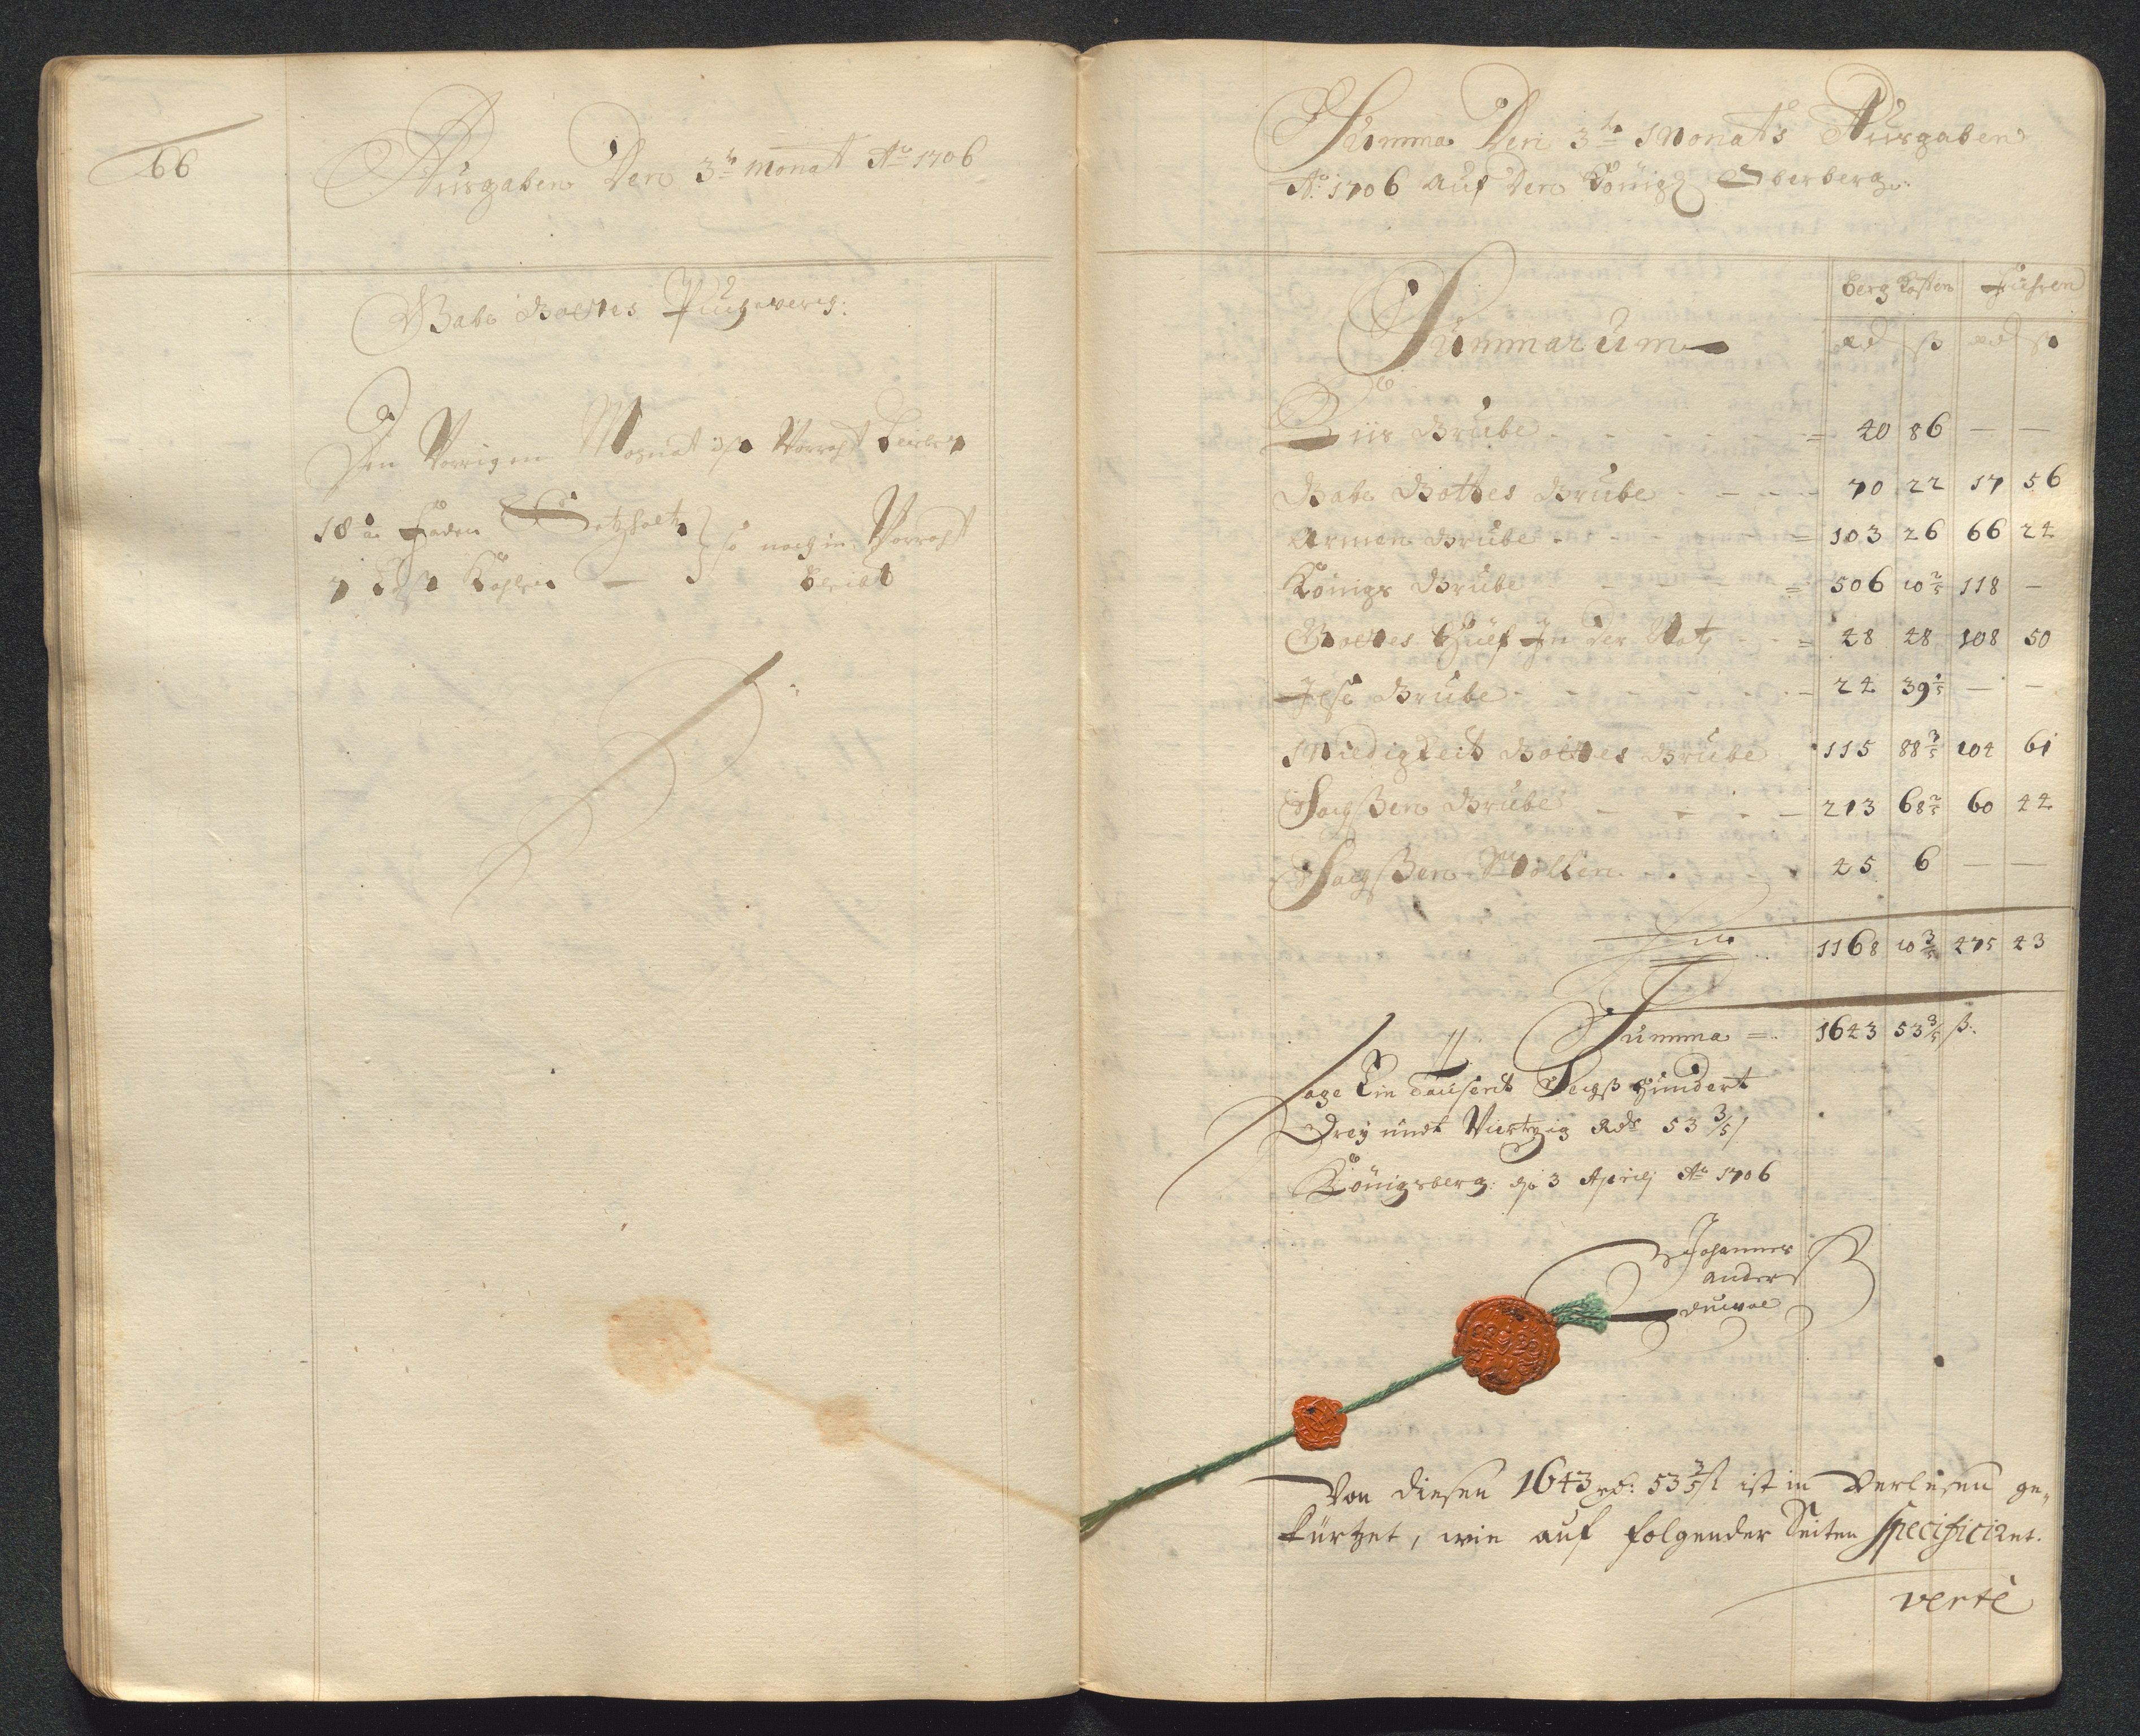 66
Ausgaben Den 3ten Monat Ao 1706
Gabe Gottes Puchwerch:
Den Vorrigen Monat ist Vorraht
18 Faden Setzholtz } so noch in Vorraht
7 Last Kohlen — bleibt
Summa Den 3ten Monats Ausgaben
Ao: 1706 Auf Den Königl Oberberg.
Summarum
berg Kosten Fuhren
Rd ß Rd ß
Grube - - - - = 40 86 — —
Gabe Gottes Grube - - - - 70 22 17 56
Armen Grube - - - - = 103 26 66 24
Königs Grube - - - - = 506 10 2/5 118 —
Gottes Hülf In der Noth - - = 48 48 108 50
Grube - - - - - 24 39 1/5 — —
Miedigkeit Gottes Grube 115 88 3/5 104 61
Sachßen Grube - - - - 213 68 2/5 60 44
Sachßen Stollen - - 45 6 — —
1168 10 3/5 475 43
Summa = 1643 53 3/5 ß.
Sage Ein Tausendt Sechß Hundert
Drey undt Viertzig Rdr 53 3/5 ß
Königsberg: d 3 Aprilj Ao 1706
Johannes
Anders
Von diesen 1643 rd: 53 3/5 ß ist in Verlesen ge„
kürtzet, wie auf folgender Seiten specificiret.
verte